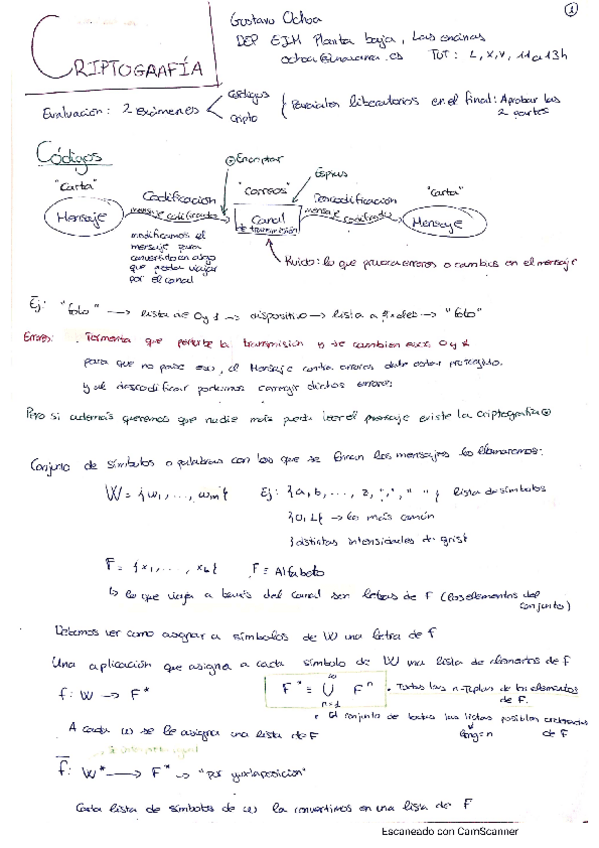 1
Gustavo Ochoa
DEP EIM Planta baja, Las encinas
ochoa@unavarra.es TUT: L, X, V, 11 a 13h
CRIPTOGRAFÍA
Evaluación: 2 exámenes códigos cripto Parciales liberatorios en el final: Aprobar las 2 partes
Códigos
⊙ Encriptar
Espías
"Carta" Codificación "correos" Descodificación "Carta"
Mensaje mensaje codificado Canal de transmisión mensaje codificado Mensaje
modificamos el
mensaje para
convertirlo en algo
que pueda viajar
por el canal
Ruido: lo que provoca errores o cambios en el mensaje
Ej: "foto" → lista de 0 y 1 → dispositivo → lista → "foto"
Errores: Tormenta que perturbe la transmisión y se cambien 0 y 1
para que no pase eso, el mensaje contra errores debe estar protegido
y al descodificar podremos corregir dichos errores
Pero si además queremos que nadie más pueda leer el mensaje existe la criptografía ⊙
Conjunto de símbolos o palabras con los que se forman los mensajes lo llamaremos:
W = {w₁, ..., wₘ} Ej: {a, b, ..., z, ",", " "} lista de símbolos
{0, 1} → lo más común
{distintas intensidades de gris}
F = {x₁, ..., } F = Alfabeto
↳ lo que viaja a través del canal son letras de F (los elementos del conjunto)
Debemos ver como asignar a símbolos de W una letra de F
Una aplicación que asigna a cada símbolo de W una lista de elementos de F
f: W → F* F* = ∪ Fⁿ n=1 ∞ • Todas las n-tuplas de los elementos de F.
• El conjunto de todas las listas posibles ordenadas de F
long = n
A cada w se le asigna una lista de F
f̄: W* → F* → "por yuxtaposición"
Cada lista de símbolos de w la convertimos en una lista de F
Escaneado con CamScanner